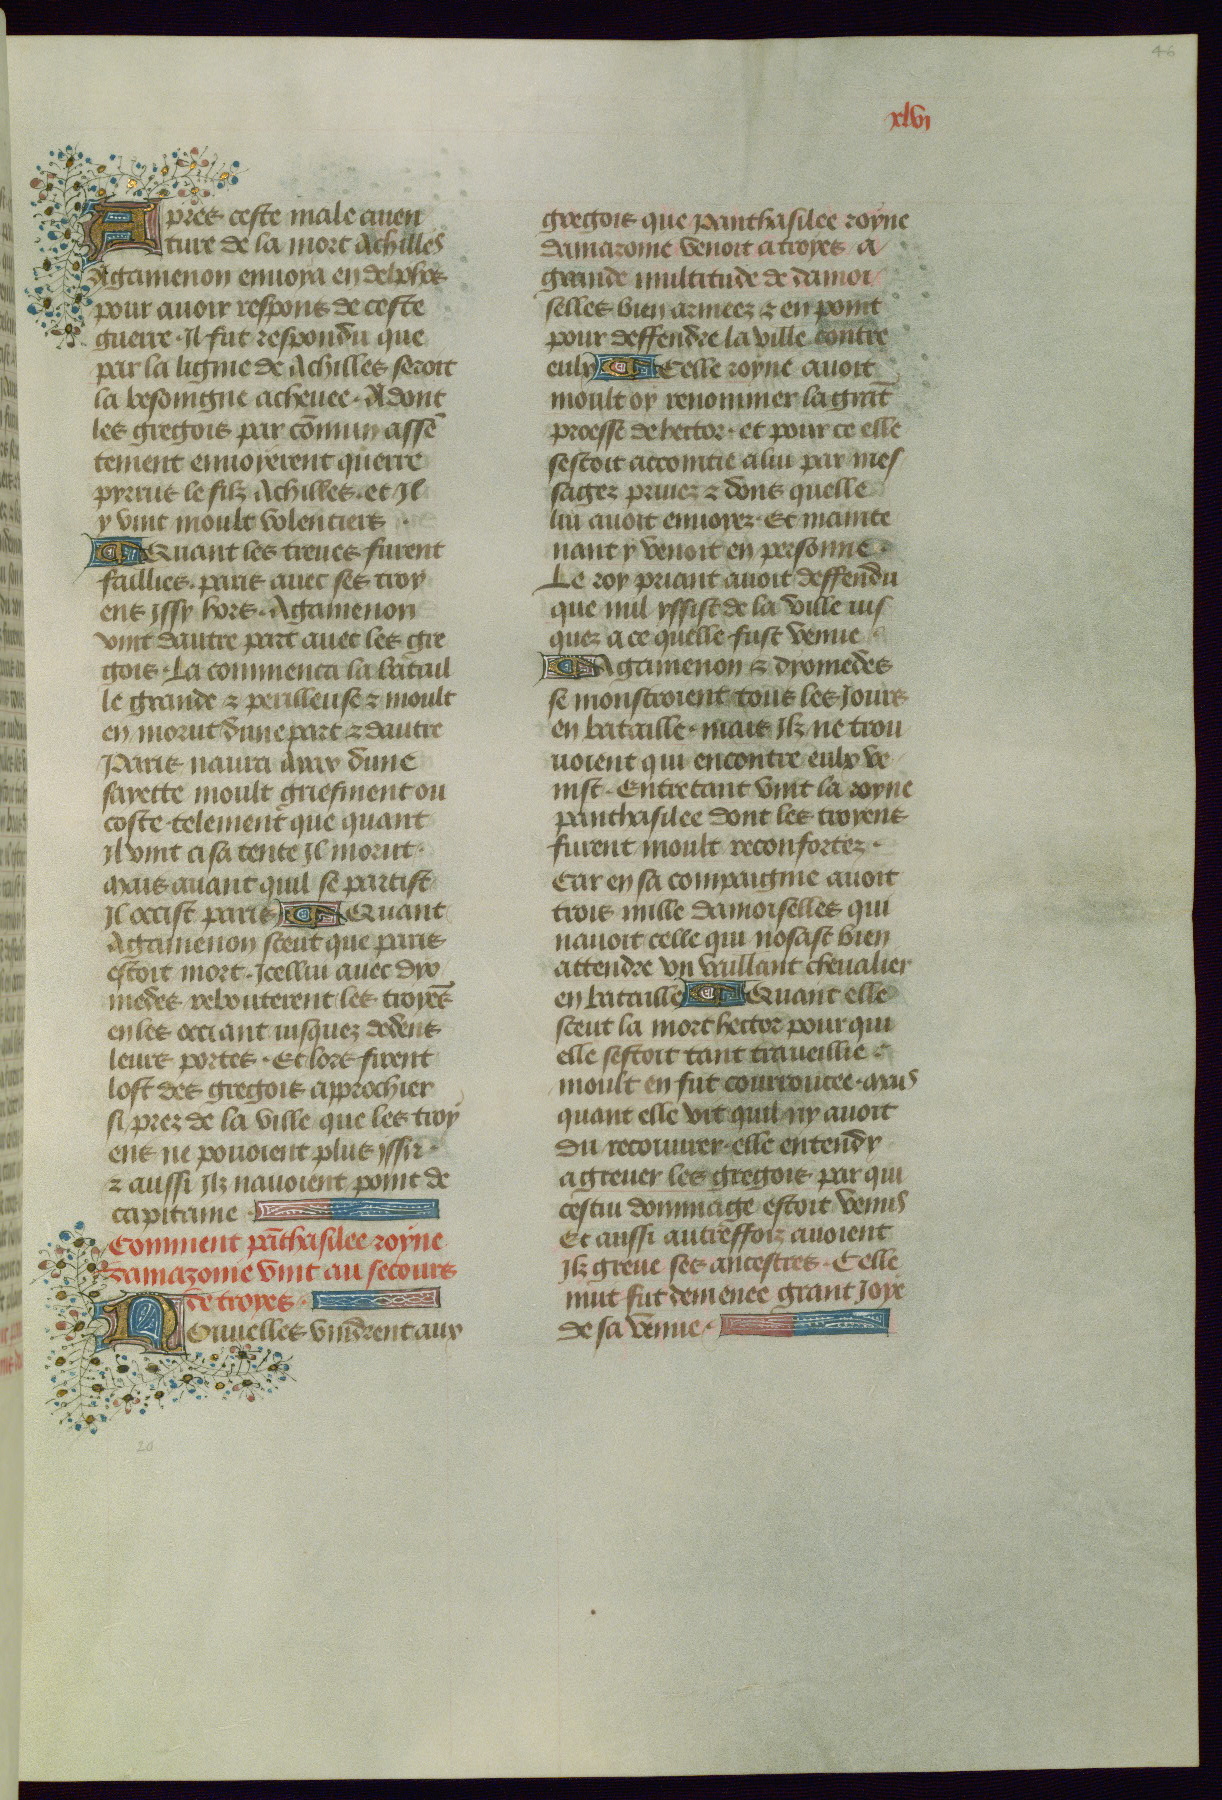 46
xlvi
Apres ceste male auen
ture de la mort Achilles
Agamenon enuoya en delphes
pour auoir respons de ceste
guerre. Il fut respondu que
par la lignie de Achilles seroit
la besoingne acheuee. Adont
les gregois par cōmun assē
tement enuoyerent querre
pyrrus le filz Achilles. et Il
y vint moult volentiers
Quant les treues furent
faillies. paris auec ses troy
ens yssy hors. Agamenon
vint dautre part auec les gre
gois. La commenca la batail
le grande & perilleuse & moult
en morut dune part & dautre
Paris naura ayax dune
sayette moult griefment ou
coste. telement que quant
Il vint a sa tente Il morut.
Mais auant quil se partist
Il occist paris Quant
Agamenon sceut que paris
estoit mort. Icellui auec dyo
medes rebouterent les troyēs
en les occiant iusquez dedens
leurs portes. Et lors firent
lost des gregois approchier
si prez de la ville que les troy
ens ne pouoient plus yssir.
& aussi Ilz nauoient point de
capitaine.
Comment pāthasilee royne
damazonie vint au secours
de troyes.
Nouuelles vindrent aux
20
gregois que panthasilee royne
damazonie venoit a troyes a
grande multitude de damoi
selles bien armeez & en point
pour deffendre la ville contre
eulx Celle royne auoit
moult oy renommer la grāt
proesse de hector. et pour ce elle
sestoit accointie a lui par mes
sagez priuez & dons quelle
lui auoit enuoyez. Et mainte
nant y venoit en personne.
Le roy priant auoit deffendu
que nul yssist de la ville ius
quez a ce quelle fust venue
Agamenon & dyomedes
se monstroient tous les Jours
en bataille. mais Ilz ne trou
uoient qui encontre eulx ve
nist. Entretant vint la royne
panthasilee dont les troyens
furent moult reconfortez.
Car en sa compaignie auoit
trois mille damoiselles qui
nauoit celle qui nosast bien
attendre vn vaillant cheualier
en bataille Quant elle
sceut la mort hector pour qui
elle sestoit tant traueillie
moult en fut courroucee. Mais
quant elle vit quil ny auoit
du recouurer. elle entendy
a greuer les gregois par qui
cestui dommage estoit venus
Et aussi autreffoiz auoient
Ilz greue ses ancestres. Celle
nuit fut demenee grant Joye
de sa venue.